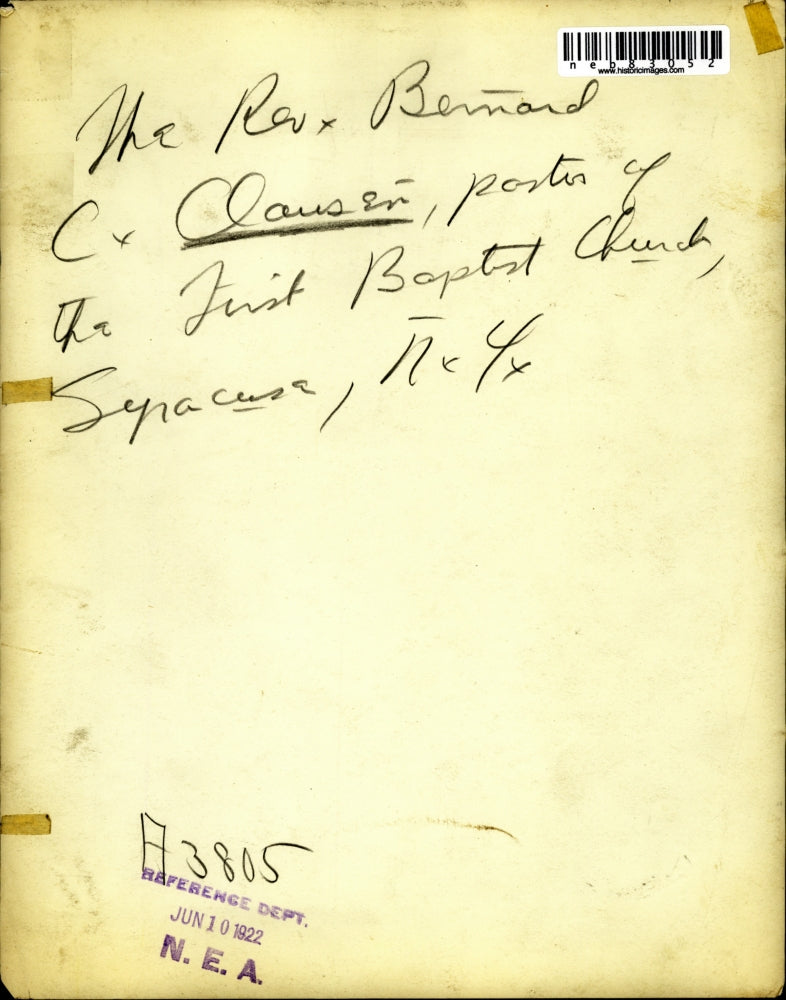 neb83052
www.historicimages.com
The Rev x Bernard
C x Clausen, pastor of
the First Baptist Church,
Syracuse, N x Y x
A3805
REFERENCE DEPT.
JUN 10 1922
N. E. A.